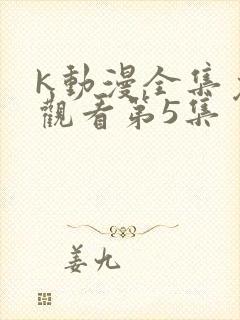 K動漫全集
觀看第5集
姜九